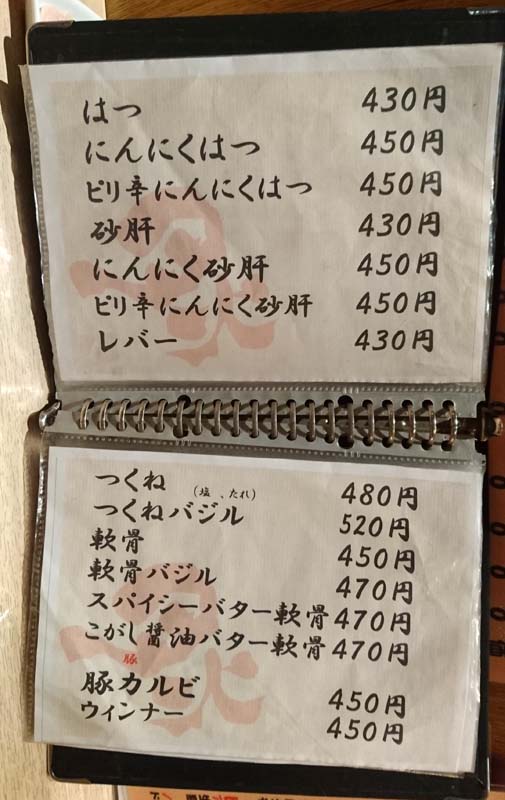 はつ 430円
にんにくはつ 450円
ピリ辛にんにくはつ 450円
砂肝 430円
にんにく砂肝 450円
ピリ辛にんにく砂肝 450円
レバー 430円
つくね（塩、たれ） 480円
つくねバジル 520円
軟骨 450円
軟骨バジル 470円
スパイシーバター軟骨 470円
こがし醤油バター軟骨 470円
豚
豚カルビ 450円
ウィンナー 450円